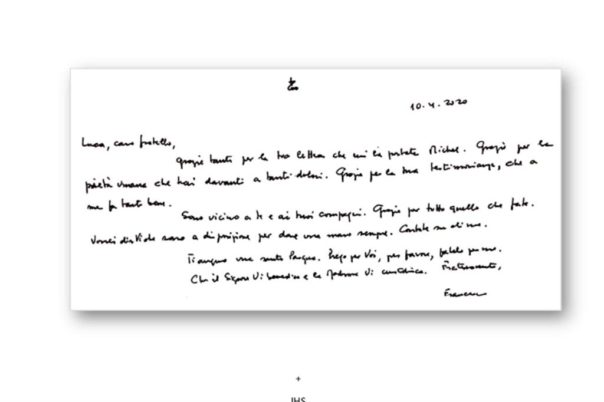 10.4.2020
Luca, caro fratello,
grazie tante per la tua lettera che mi ha portato Michel. Grazie per la
pietà umana che hai davanti a tanti dolori. Grazie per la tua testimonianza, che a
me fa tanto bene.
Sono vicino a te e ai tuoi compagni. Grazie per tutto quello che fate.
Vorrei dirti che sono a disposizione per dare una mano sempre. Contate su di me.
Ti auguro una santa Pasqua. Prego per Voi, per favore, fatelo per me.
Che il Signore Vi benedica e la Madonna Vi custodisca. Fraternamente,
Francesco
+
IHS